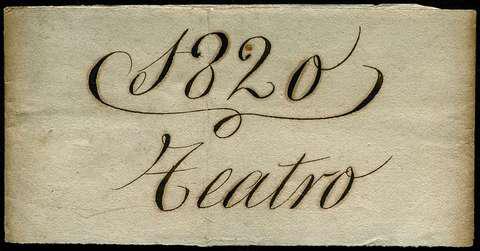 1820
Teatro